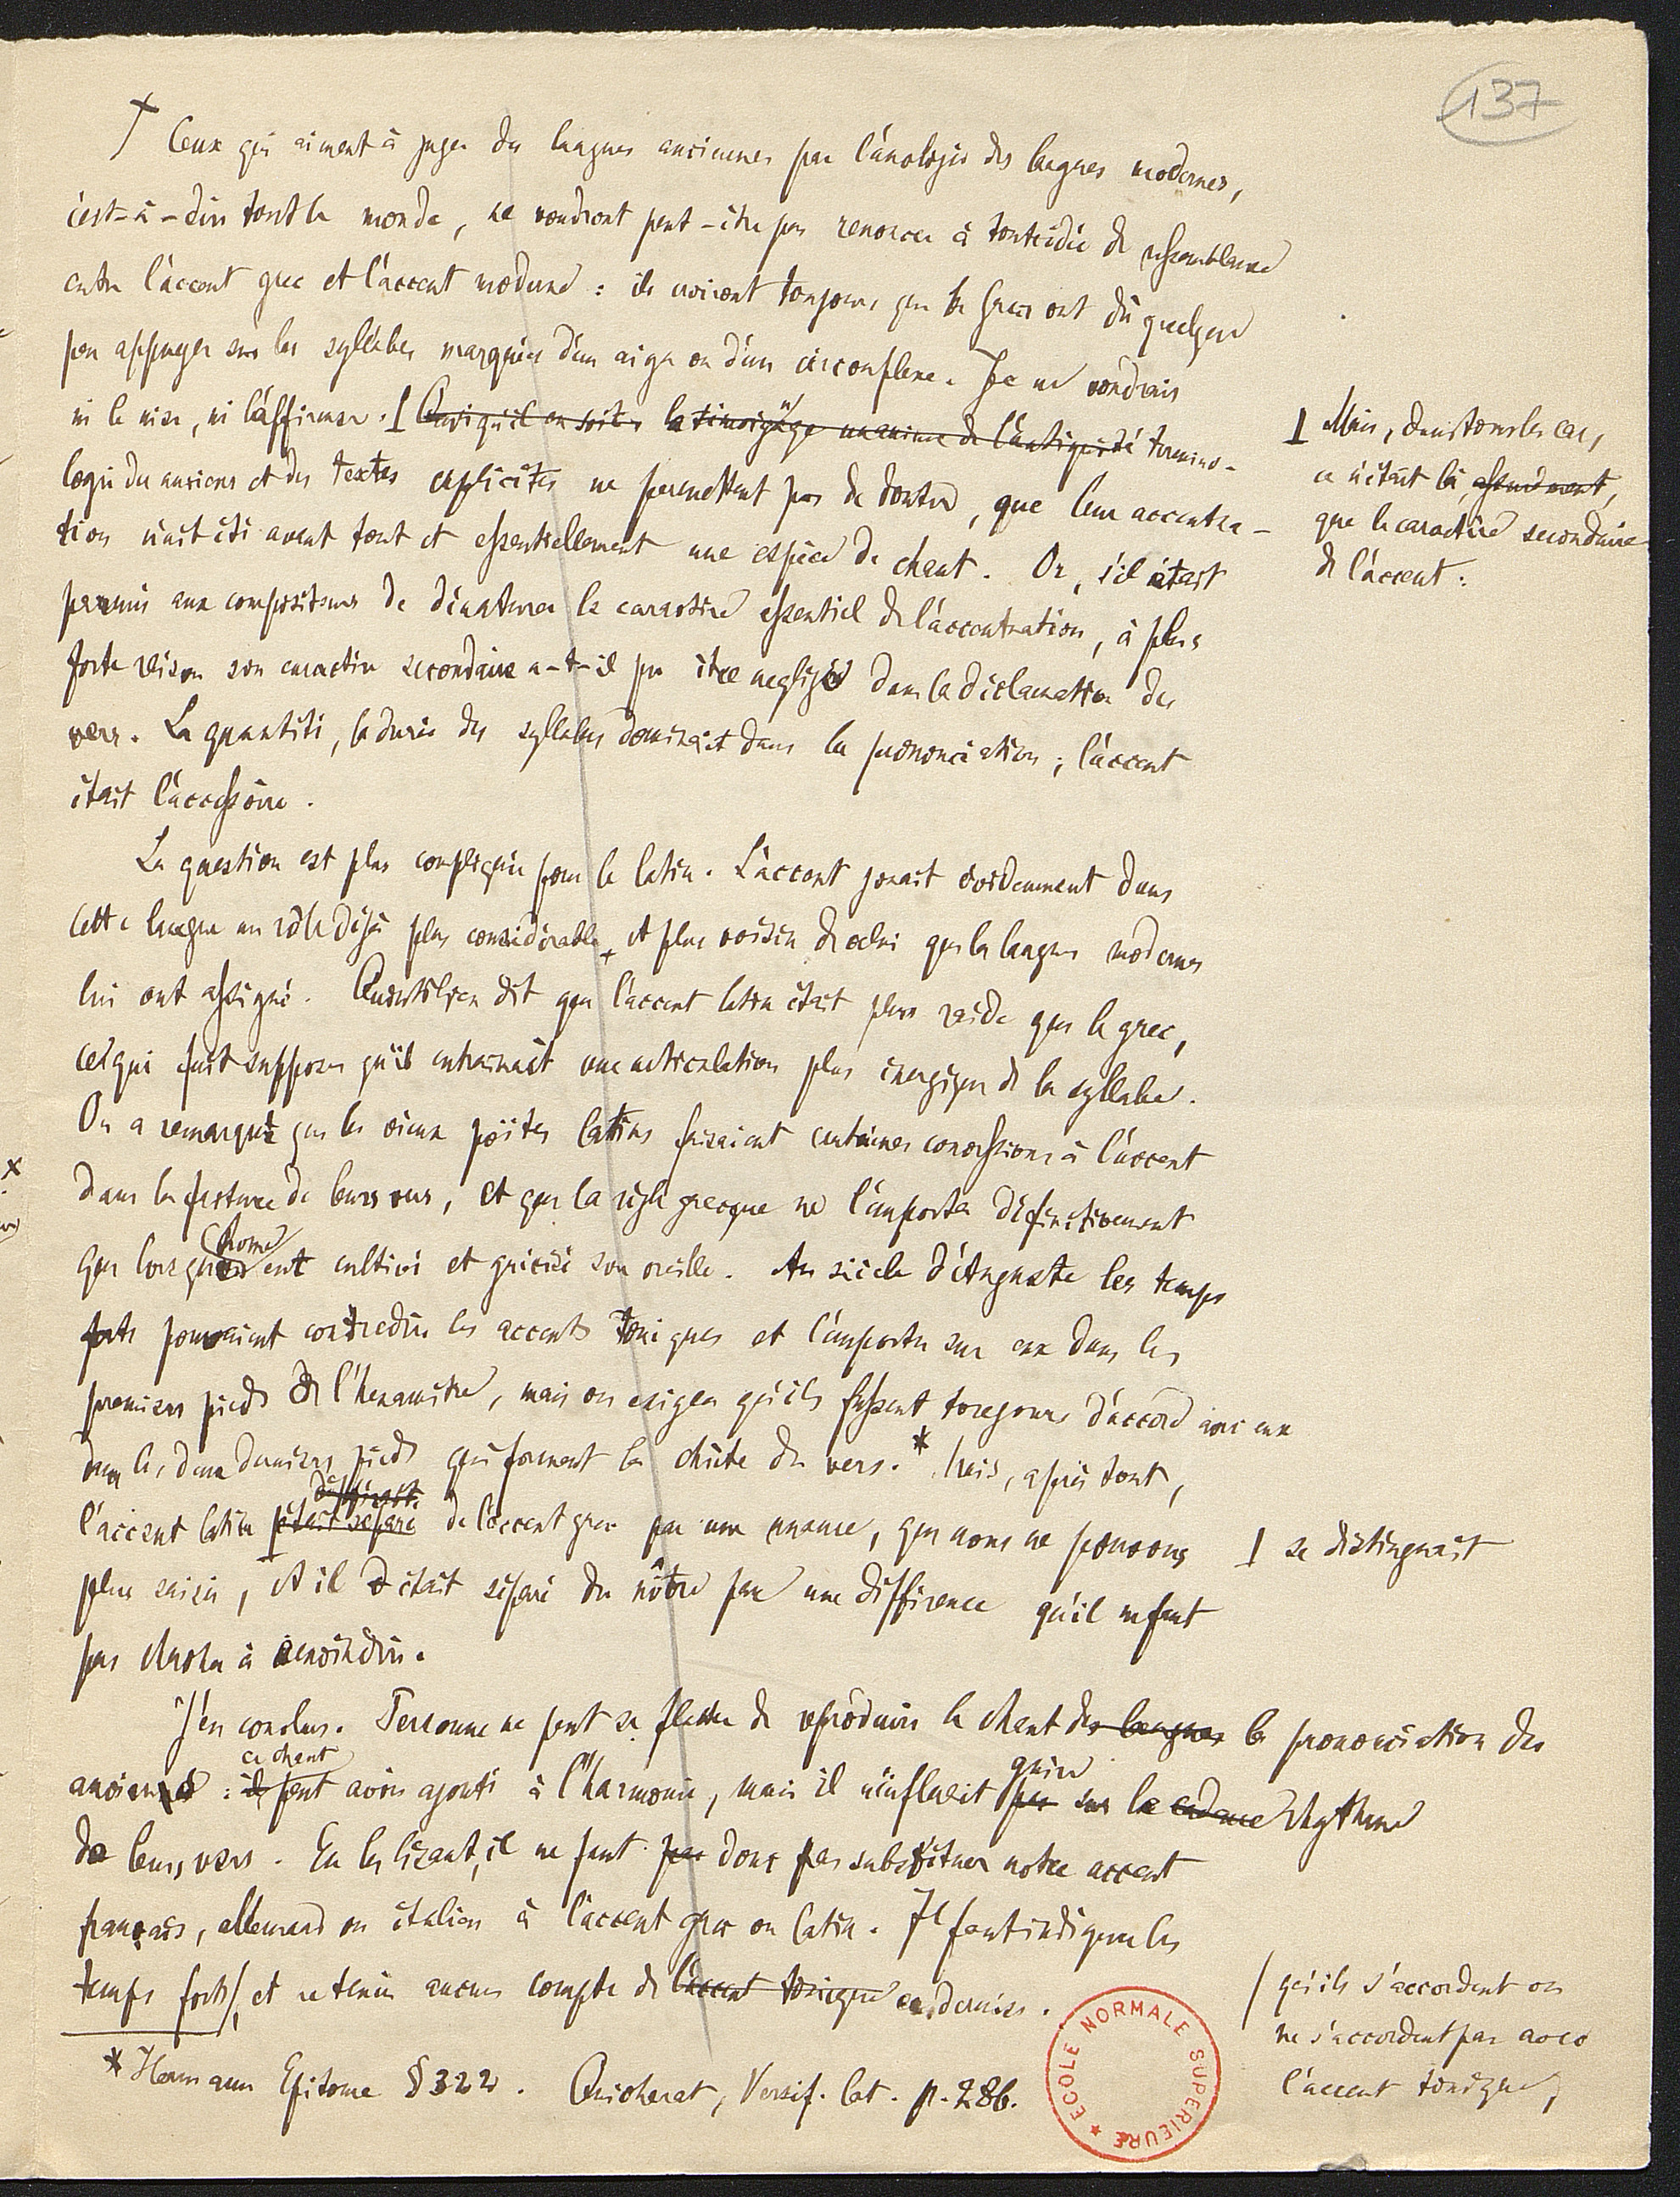 137
† Ceux qui aiment à juger des langues anciennes par l'analogie des langues modernes,
c'est-à-dire tout le monde, ne voudront peut-être pas renoncer à toute idée de ressemblance
entre l'accent grec et l'accent moderne : ils croiront toujours que les Grecs ont dû quelque
peu appuyer sur les syllabes marquées d'un aigu ou d'un circonflexe. Je ne voudrais
ni le nier, ni l'affirmer. Quoiqu'il en soit, le témoignage unanime de l'antiquité termino-
logie des anciens et des textes explicites ne permettent pas de douter, que leur accentua-
tion n'ait été avant tout et essentiellement une espèce de chant. Or, s'il était
permis aux compositeurs de dénaturer le caractère essentiel de l'accentuation, à plus
forte raison son caractère secondaire a-t-il pu être négligé dans la déclamation des
vers. La quantité, la durée des syllabes dominait dans la prononciation ; l'accent
était l'accessoire.
Mais, dans tous les cas,
ce n'était là, assurément,
que le caractère secondaire
de l'accent :
La question est plus compliquée pour le latin. L'accent jouait évidemment dans
cette langue un rôle déjà plus considérable, et plus voisin de celui que les langues modernes
lui ont assigné. Quintilien dit que l'accent latin était plus raide que le grec,
ce qui fait supposer qu'il entraînait une articulation plus énergique de la syllabe.
On a remarqué que les vieux poëtes latins faisaient certaines concessions à l'accent
dans la facture de leurs vers, et que la règle grecque ne l'emporta définitivement
que lorsque Rome eut cultivé et grécisé son oreille. Au siècle d'Auguste les temps
forts pouvaient contredire les accents toniques et l'emporter sur eux dans les
premiers pieds de l'hexamètre, mais on exigea qu'ils fussent toujours d'accord avec eux
dans les deux derniers pieds qui forment la chûte du vers.* Mais, après tout,
l'accent latin était séparé de l'accent grec par une nuance, que nous ne pouvons
se distinguait
plus saisir, et il était séparé du nôtre par une différence qu'il ne faut
pas chercher à amoindrir.
J'en conclus. Personne ne peut se flatter de reproduire le chant des langues la prononciation des
anciens : il ce chant peut avoir ajouté à l'harmonie, mais il n'influait pas guère sur la cadence rhythme
de leurs vers. En les lisant, il ne faut pas donc pas substituer notre accent
français, allemand ou italien à l'accent grec ou latin. Il faut indiquer les
temps forts, et ne tenir aucun compte de l'accent tonique ce dernier.
qu'ils s'accordent ou
ne s'accordent pas avec
l'accent tonique,
* Hermann Epitome § 322. Quicherat, Versif. lat. p. 286.
ECOLE NORMALE SUPERIEURE